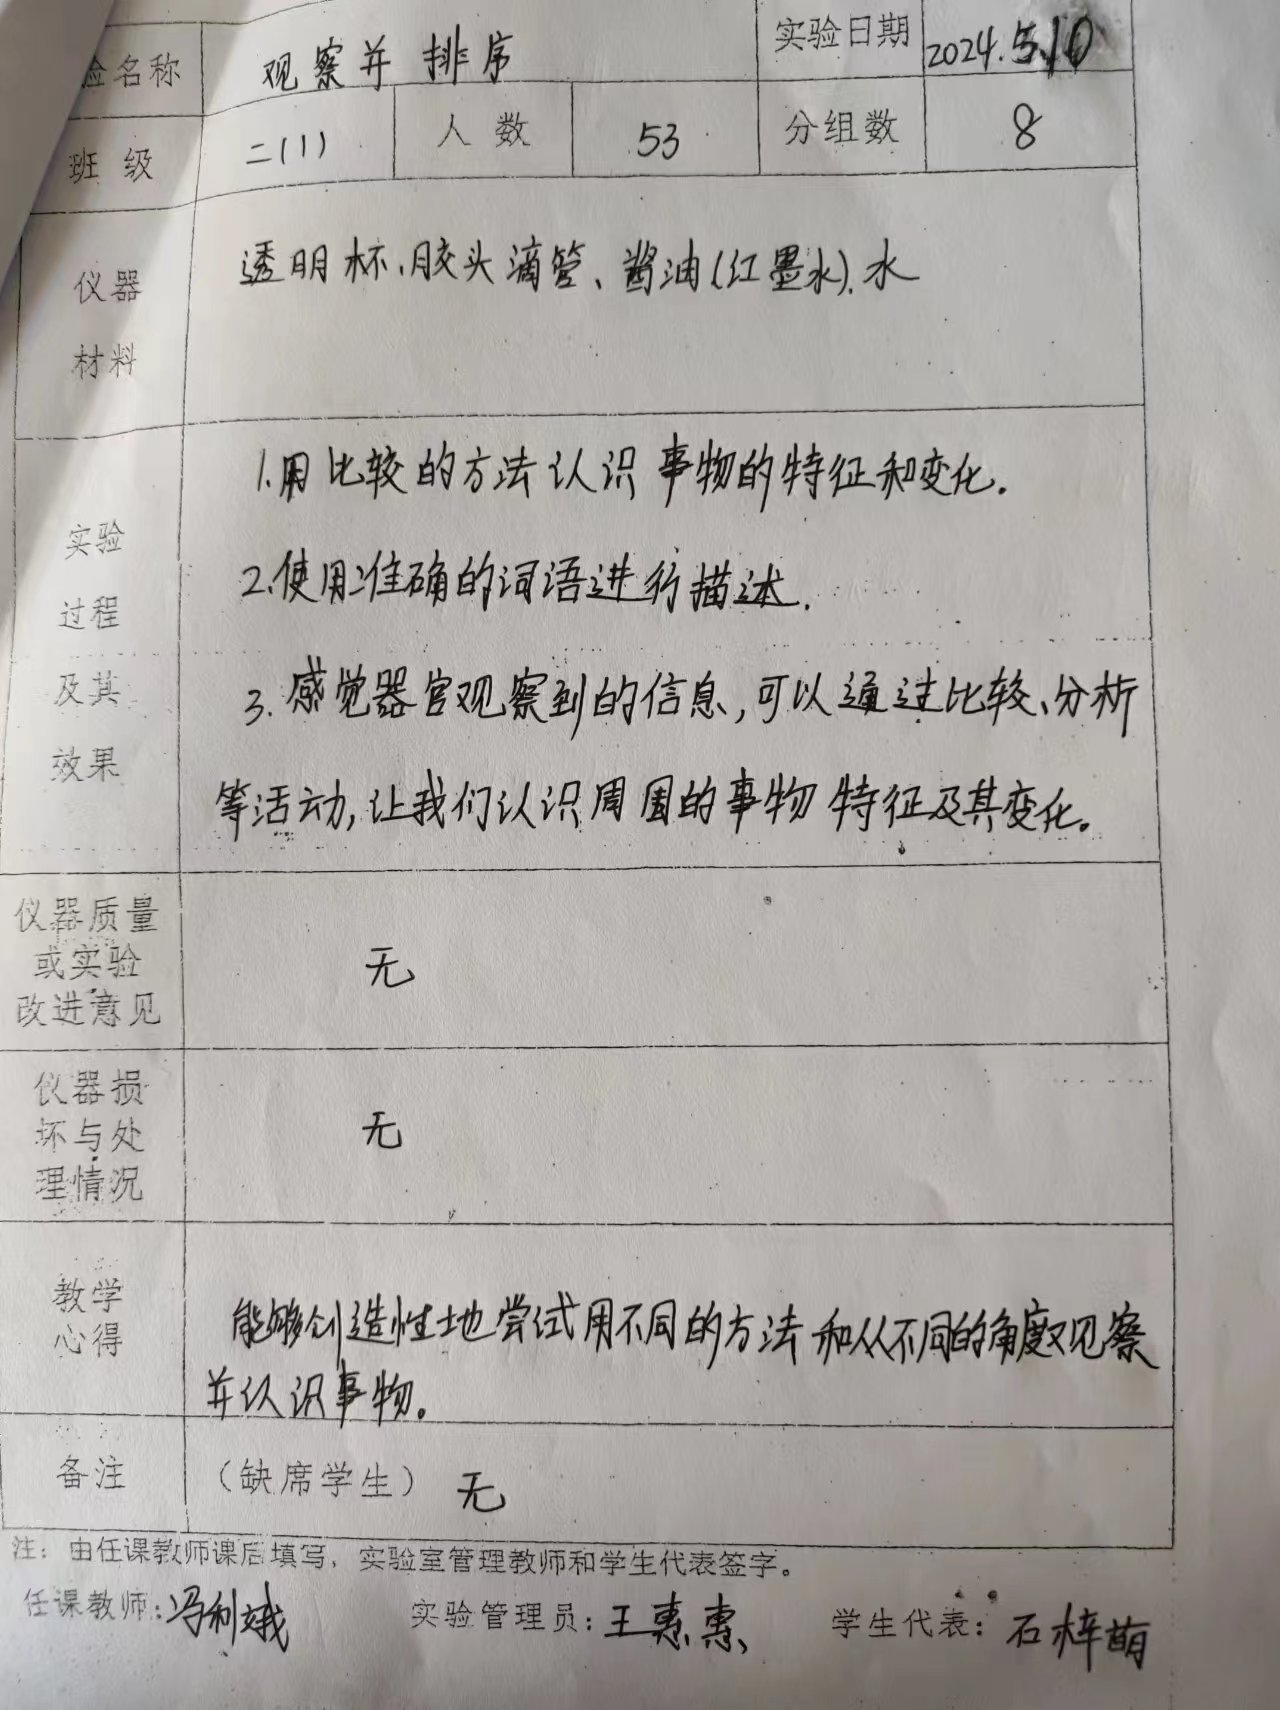 验名称 观察并排序 实验日期 2024.5.10
班级 二(1) 人数 53 分组数 8
仪器 透明杯、胶头滴管、酱油(红墨水).水
材料
1.用比较的方法认识事物的特征和变化.
实验
2.使用准确的词语进行描述.
过程
及其 3.感觉器官观察到的信息,可以通过比较、分析
效果
等活动,让我们认识周围的事物特征及其变化。
仪器质量
或实验 无
改进意见
仪器损
坏与处 无
理情况
教学
心得 能够创造性地尝试用不同的方法和从不同的角度观察
并认识事物。
备注 (缺席学生) 无
注:由任课教师课后填写,实验室管理教师和学生代表签字。
任课教师:冯利娥 实验管理员:王惠惠 学生代表:石梓萌